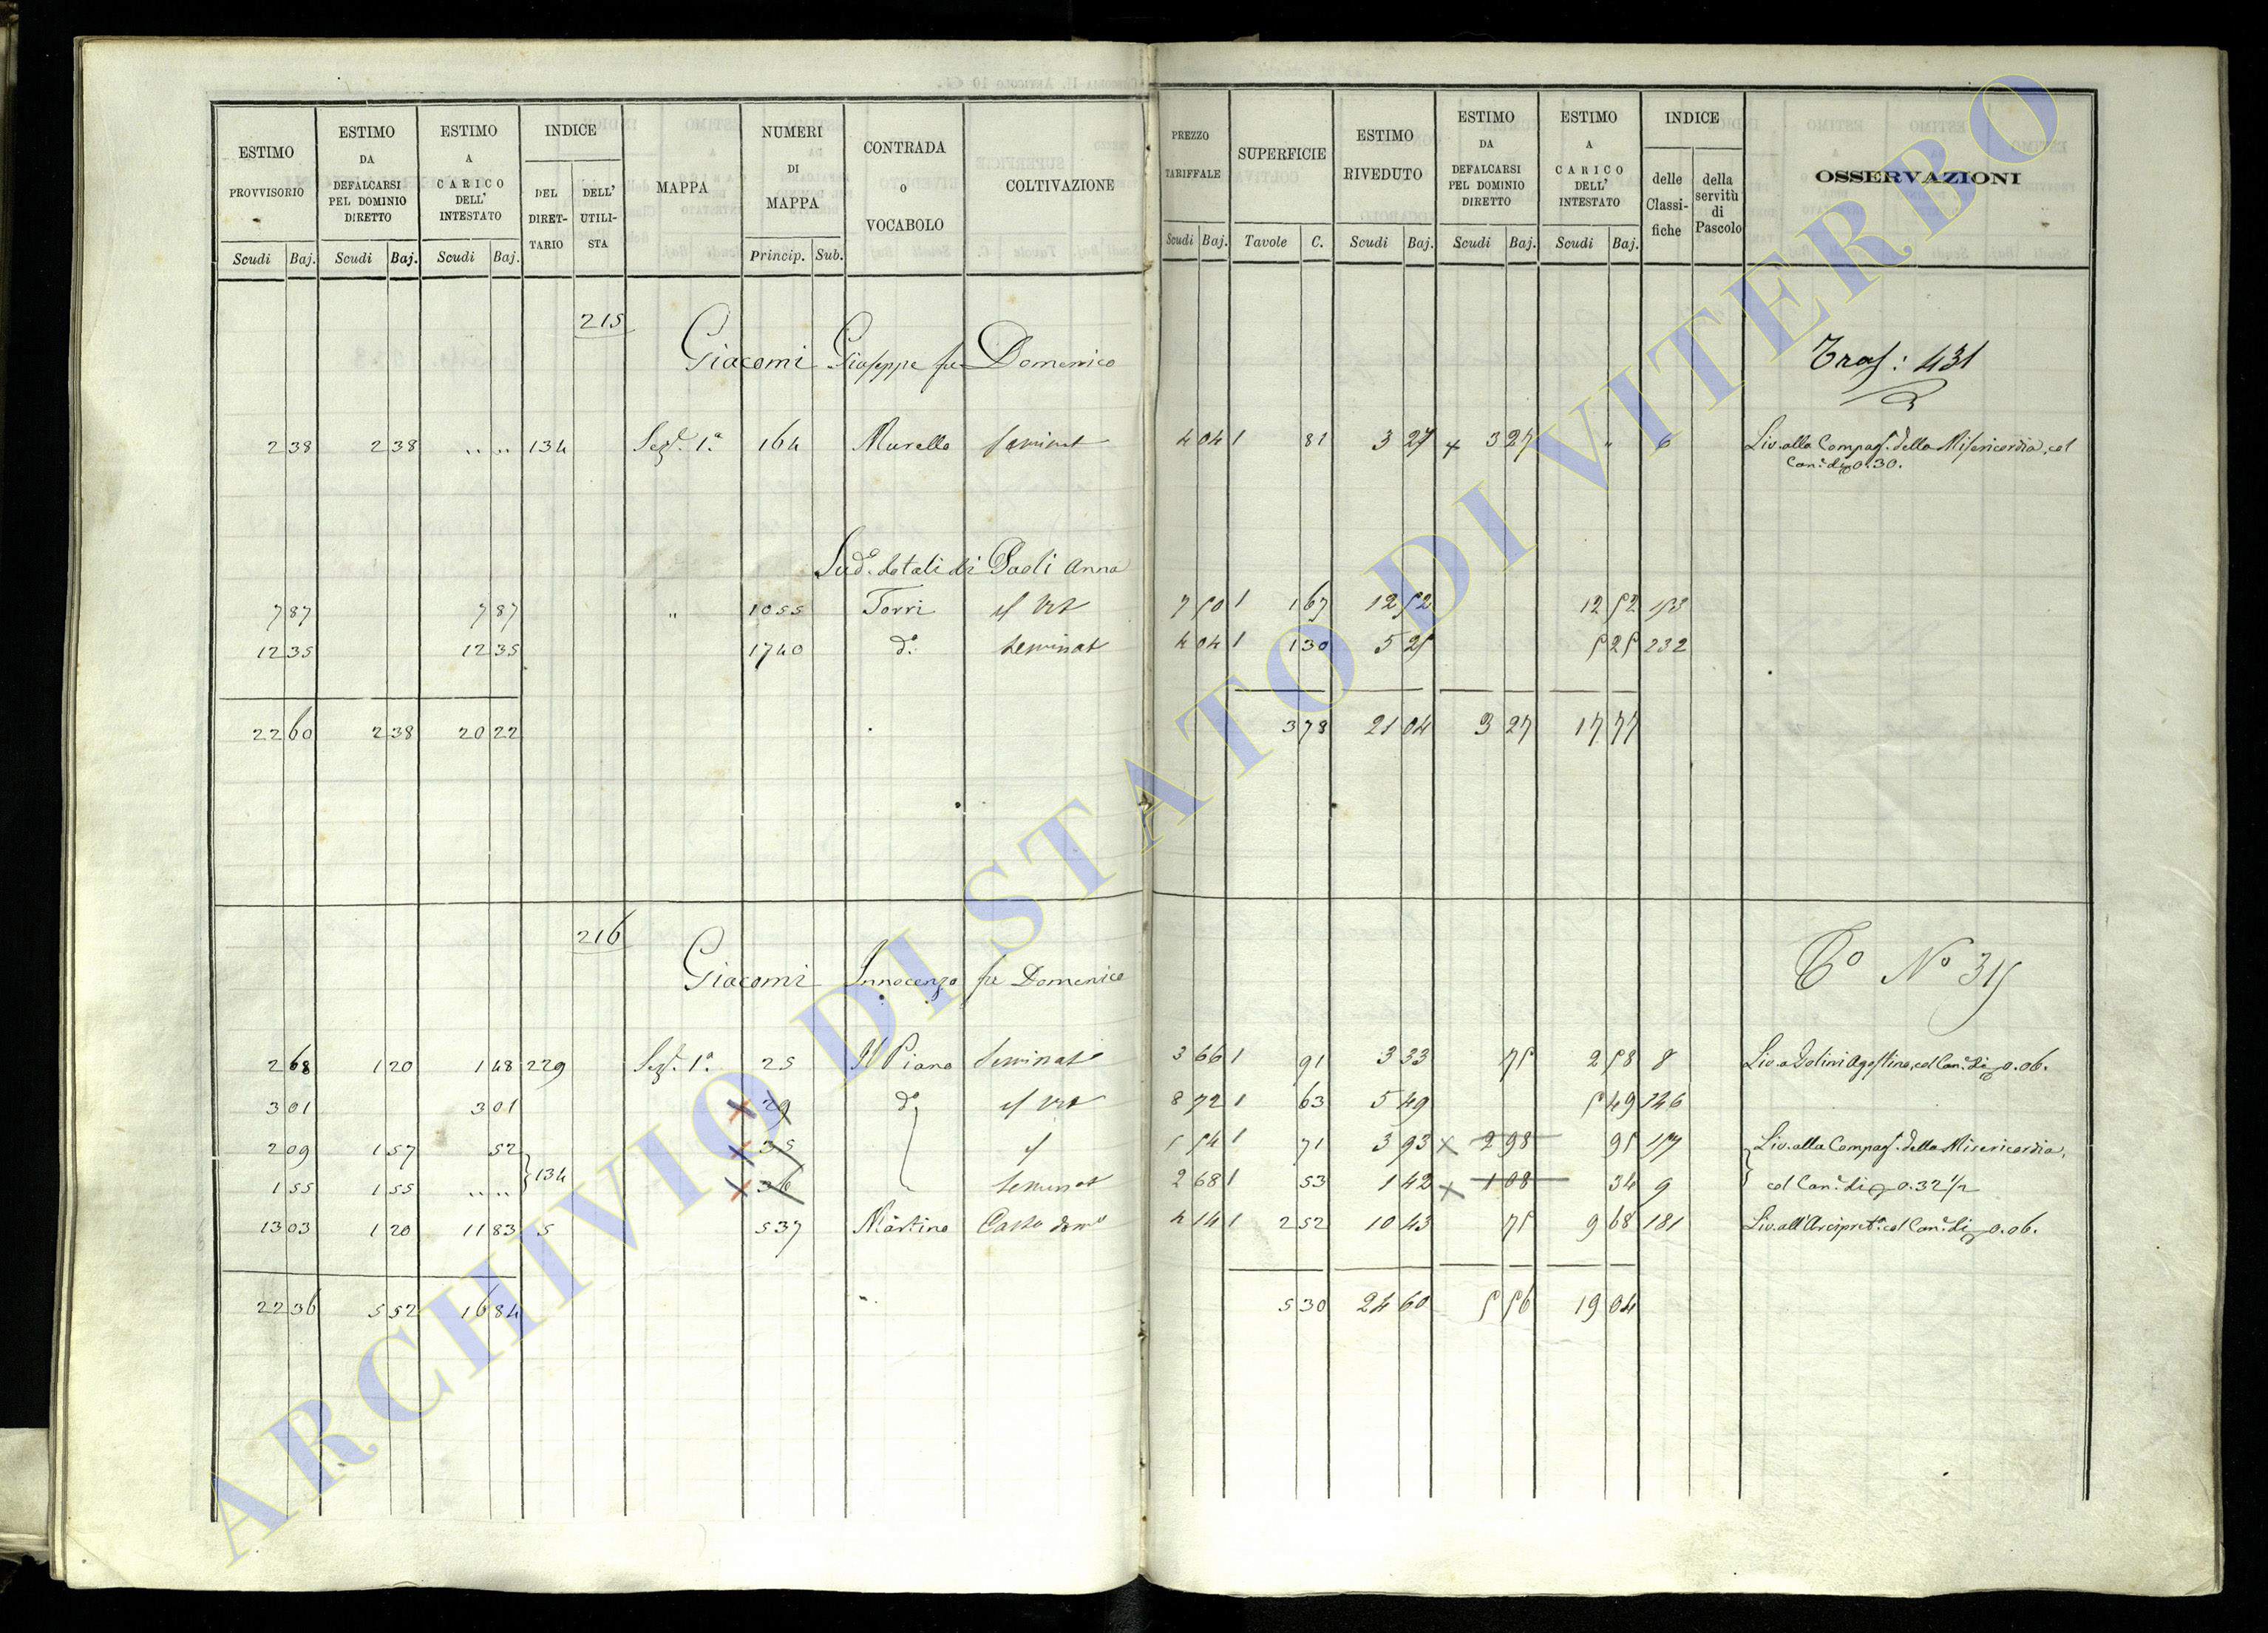 ESTIMO PROVVISORIO Scudi Baj.
ESTIMO DA DEFALCARSI PEL DOMINIO DIRETTO Scudi Baj.
ESTIMO A CARICO DELL' INTESTATO Scudi Baj.
INDICE DEL DIRETTARIO DELL' UTILISTA
MAPPA
NUMERI DI MAPPA Princip. Sub.
CONTRADA O VOCABOLO
COLTIVAZIONE
PREZZO TARIFFALE Scudi Baj.
SUPERFICIE Tavole C.
ESTIMO RIVEDUTO Scudi Baj.
ESTIMO DA DEFALCARSI PEL DOMINIO DIRETTO Scudi Baj.
ESTIMO A CARICO DELL' INTESTATO Scudi Baj.
INDICE delle Classifiche della servitù di Pascolo
OSSERVAZIONI
215
Giacomi Giuseppe fu Domenico
Tras: 431
2 38 2 38 „ „ 134 Sez.e 1.a 164 Murella seminat 4 04 1 81 3 27 x 3 27 „ 6 Liv. alla Compag. della Misericordia, col
Can.e di 0.30.
Sud.o dotali di Paoli Anna
7 87 7 87 „ 1055 Torri s Vit 7 50 1 1 67 12 52 12 52 153
12 35 12 35 1740 d.o seminat 4 04 1 1 30 5 25 5 25 232
22 60 2 38 20 22 3 78 21 04 3 27 17 77
216
Giacomi Innocenzo fu Domenico
No
2 68 1 20 1 48 229 Sez.e 1.a 25 Il Piano seminat 3 66 1 91 3 33 75 2 58 8 Liv. a Agostino, col Can.e di 0.06.
3 01 3 01 29 d.o s Vit 8 72 1 63 5 49 5 49 126
2 09 1 57 52 134 35 s 5 54 1 71 3 93 x 2 98 95 157 Liv. alla Compag. della Misericordia,
1 55 1 55 „ „ 36 seminat 2 68 1 53 1 42 x 1 08 34 9 col Can.e di 0.32 1/2
13 03 1 20 11 83 5 537 Martino 4 14 1 2 52 10 43 75 9 68 181 Liv. all'Arcipret.a col Can.e di 0.06.
22 36 5 52 16 84 5 30 24 60 5 56 19 04
ARCHIVIO DI STATO DI VITERBO